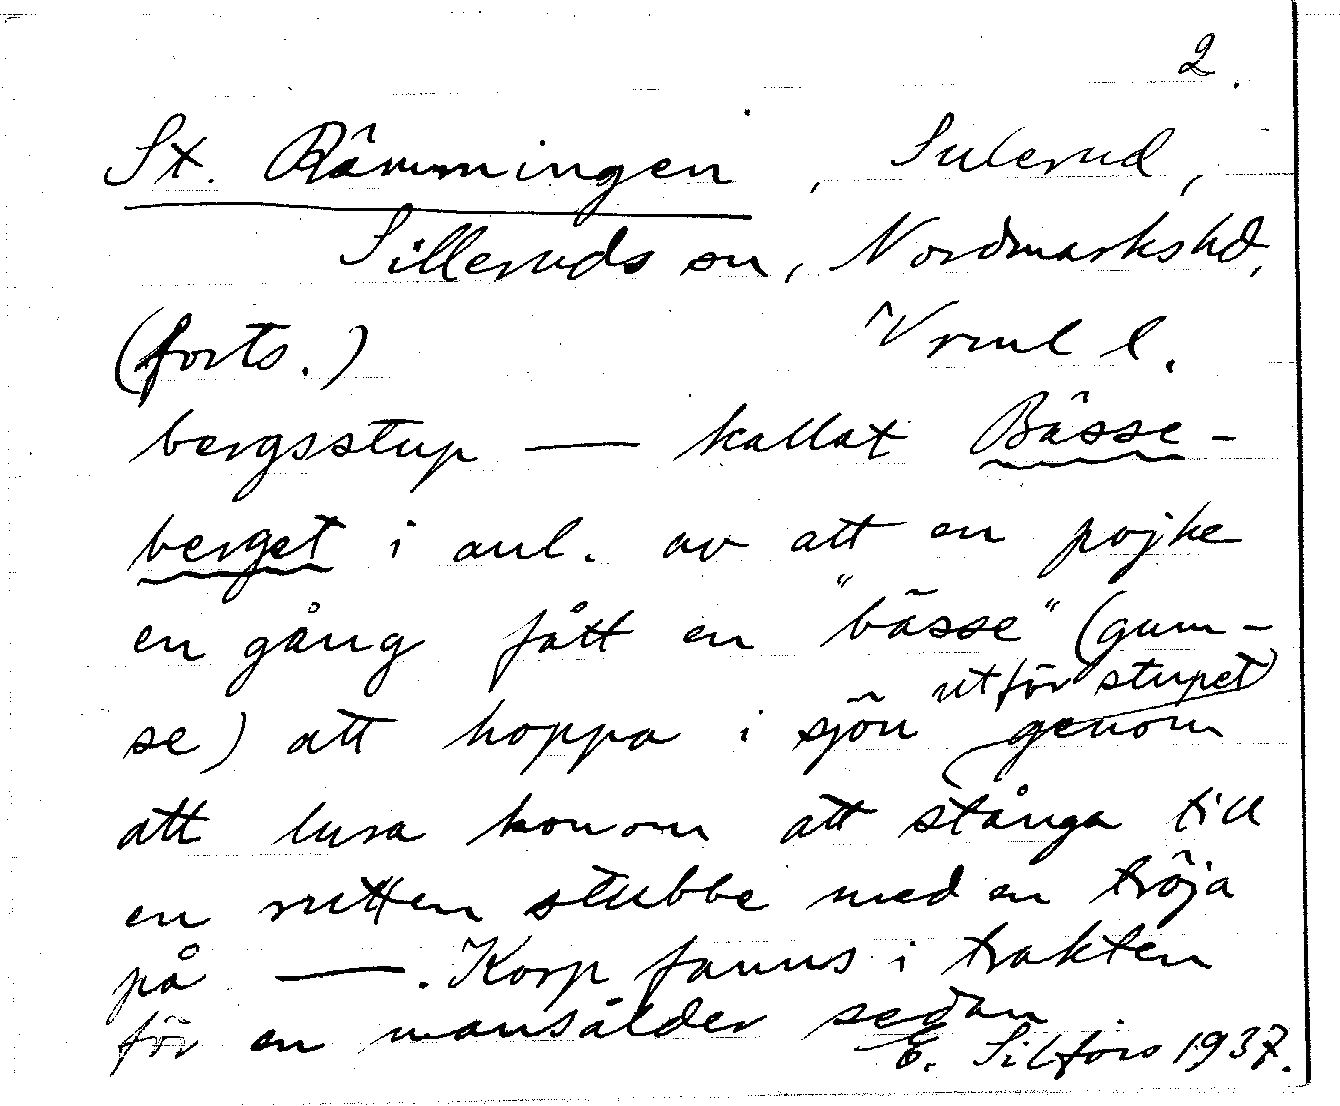 2.
St. Rämmingen, Sulerud,
Silleruds sn, Nordmarks hd,
(forts.) Vrml l.
bergsstup — kallat Bässe-
berget i anl. av att en pojke
en gång fått en "bässe" (gum-
se) att hoppa i sjön utför stupet genom
att lura honom att stånga till
en rutten stubbe med en tröja
på —. Korp fanns i trakten
för en mansålder sedan.
E. Silfors 1937.